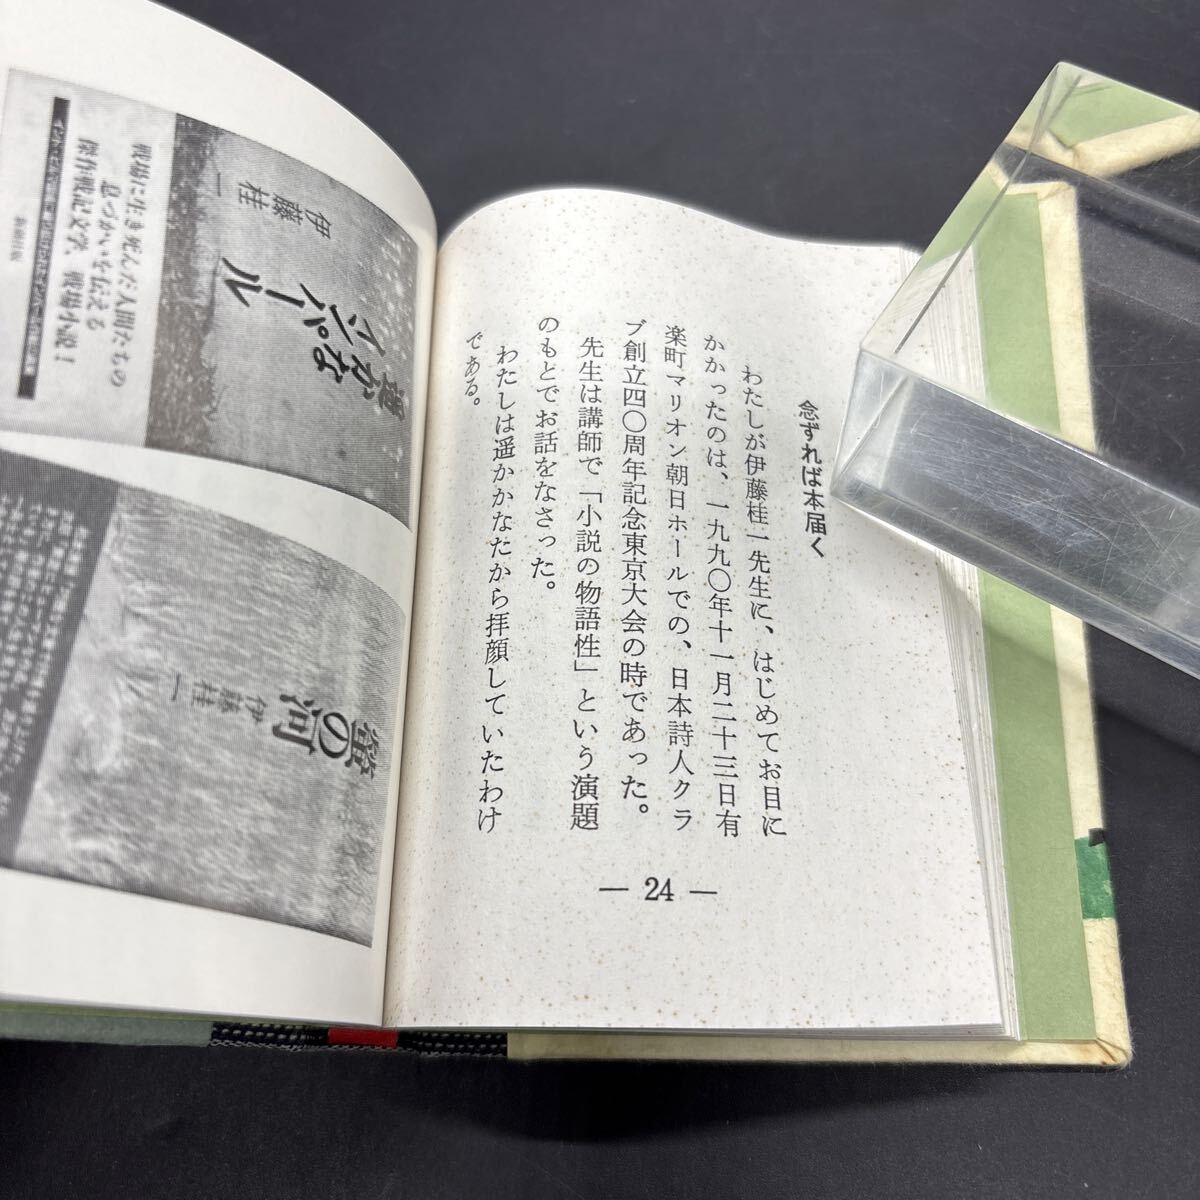 念ずれば本届く
わたしが伊藤桂一先生に、はじめてお目に
かかったのは、一九九〇年十一月二十三日有
楽町マリオン朝日ホールでの、日本詩人クラ
ブ創立四〇周年記念東京大会の時であった。
先生は講師で「小説の物語性」という演題
のもとでお話をなさった。
わたしは遥かかなたから拝顔していたわけ
である。
— 24 —
遥かな
インパール
伊藤桂一
戦場に生き死んだ人間たちの
息づかいを伝える
傑作戦記文学、戦場小説!
螢の河
伊藤桂一